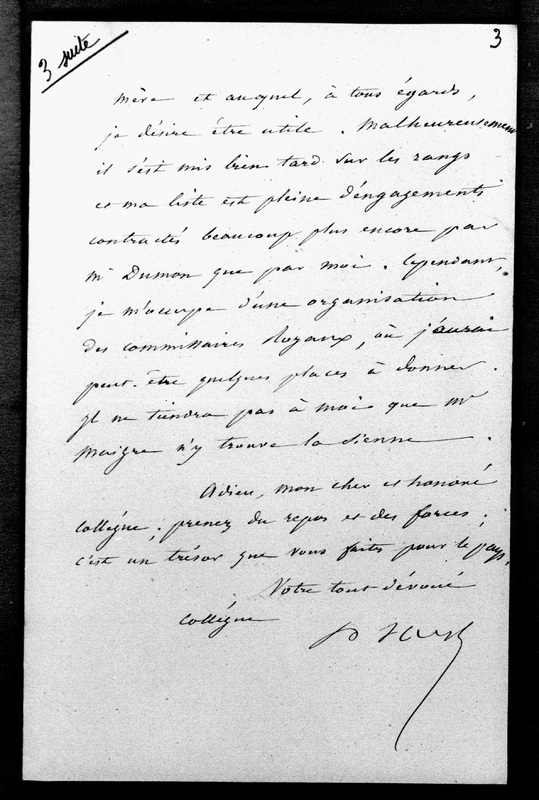 3 suite
3
mère et auquel, à tous égards,
je désire être utile. Malheureusement
il s'est mis bien tard sur les rangs
et ma liste est pleine d'engagements
contractés beaucoup plus encore par
mr Dumon que par moi. Cependant,
je m'occupe d'une organisation
des commissaires Royaux, où j'aurai
peut-être quelques places à donner.
Il ne tiendra pas à moi que mr
Maigre n'y trouve la sienne.
Adieu, mon cher et honoré
collègue; prenez du repos et des forces;
c'est un trésor que vous faites pour le pays.
Votre tout dévoué
collègue